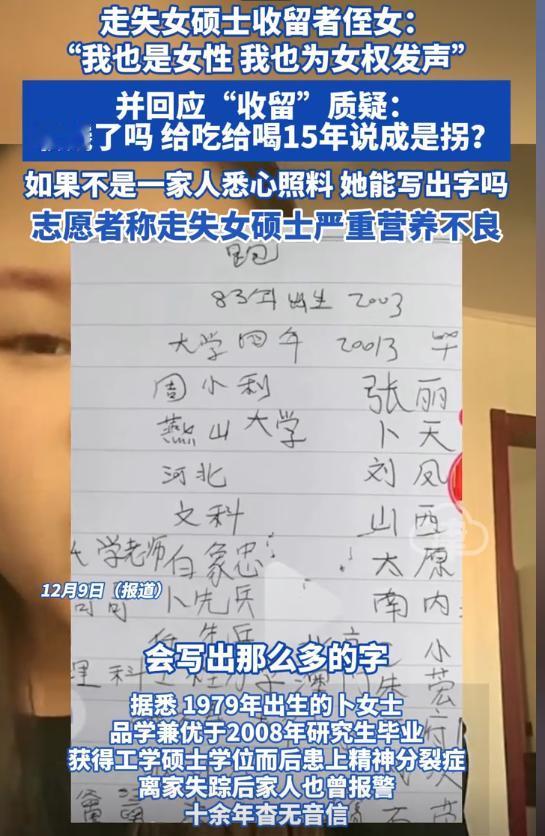 走失女硕士收留者侄女：
“我也是女性 我也为女权发声”
并回应“收留”质疑：
了吗 给吃给喝15年说成是拐？
如果不是一家人悉心照料 她能写出字吗
志愿者称走失女硕士严重营养不良
83年出生 2003
大学四年 20013
周小利 张丽
燕山大学 卜天
河北 刘凤
文科 山西
大学老师 白象忠 太原
12月9日（报道）
卜先兵 南内
小
会写出那么多的字
理科
据悉 1979年出生的卜女士
品学兼优于2008年研究生毕业
获得工学硕士学位而后患上精神分裂症
离家失踪后家人也曾报警
十余年杳无音信